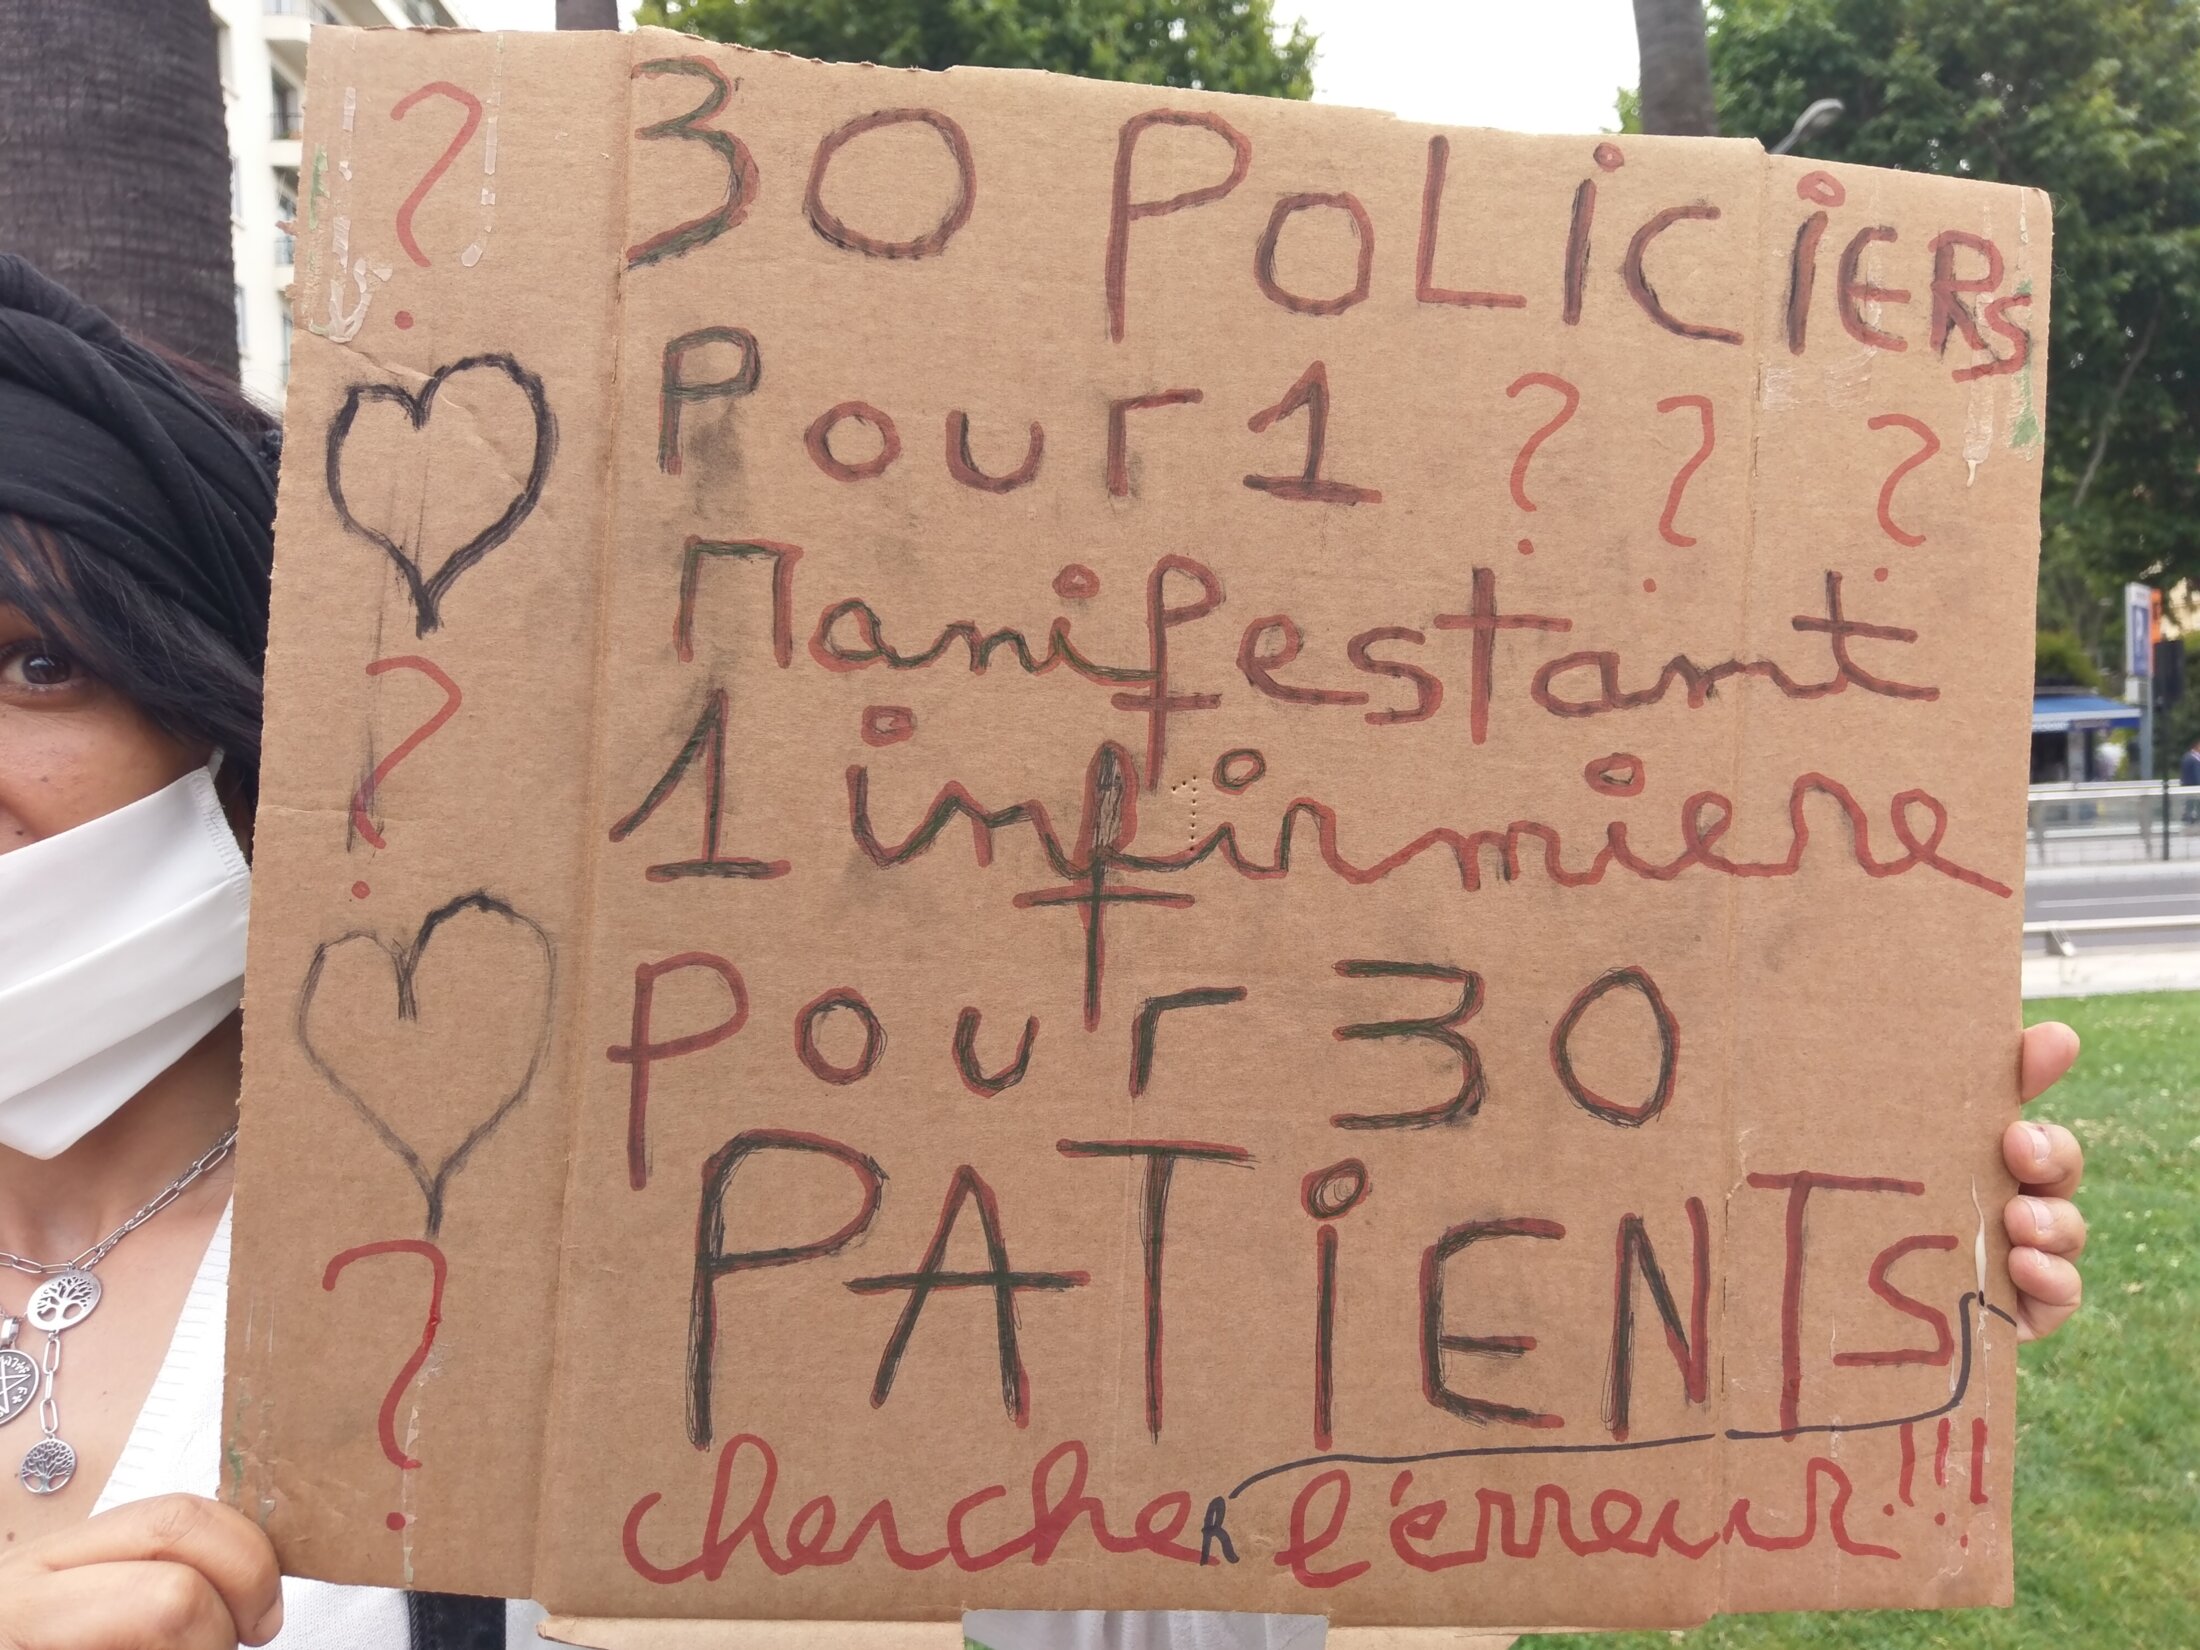 30 POLiCiERS
Pour 1 ? ? ?
Manifestant
1 infirmiere
Pour 30
PATiENTS
chercheR l'érreur !!!
?
?
?